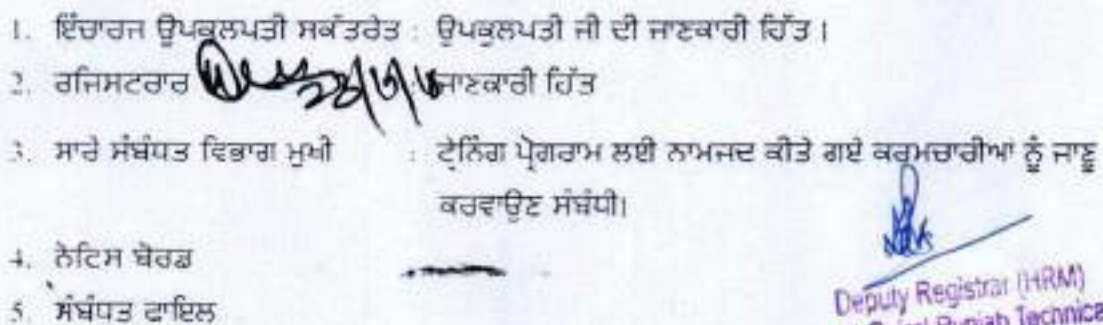 1. ਇੰਚਾਰਜ ਊਪਕੁਲਪਤੀ ਸਕੱਤਰੇਤ : ਉਪਕੁਲਪਤੀ ਜੀ ਦੀ ਜਾਣਕਾਰੀ ਹਿੱਤ ।
2. ਰਜਿਸਟਰਾਰ ਜਾਣਕਾਰੀ ਹਿੱਤ
3. ਸਾਰੇ ਸੰਬੰਧਤ ਵਿਭਾਗ ਮੁਖੀ : ਟ੍ਰੇਨਿੰਗ ਪ੍ਰੋਗਰਾਮ ਲਈ ਨਾਮਜਦ ਕੀਤੇ ਗਏ ਕਰਮਚਾਰੀਆ ਨੂੰ ਜਾਣੂ
ਕਰਵਾਉਣ ਸੰਬੰਧੀ।
4. ਨੋਟਿਸ ਬੋਰਡ
5. ਸੰਬੰਧਤ ਫਾਇਲ
Deputy Registrar (HRM)
Gujral Punjab Technica